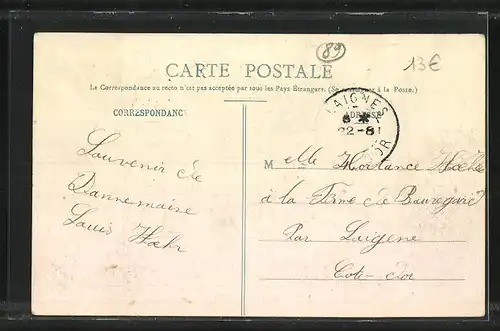 89
13€
CARTE POSTALE
La Correspondance au recto n'est pas acceptée par tous les Pays Étrangers. (Se renseigner à la Poste.)
CORRESPONDANCE
LAIGNES
ADRESSE
22-8
D'OR
Souvenir de
Dannemoine
Louis Hoehr
Melle Hortance
à la Ferme de Beauregard
Par Laigene
Cote-dor